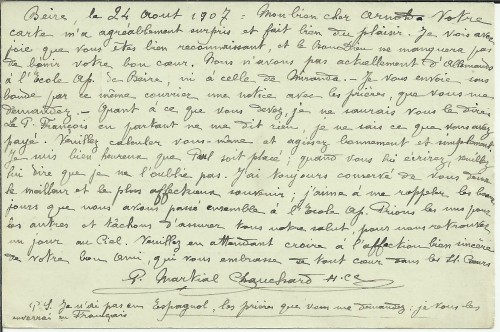 Beire, le 24 Aout 1907 = Mon bien cher Votre
carte m'a agréablement surpris et fait bien du plaisir. Je vois avec
joie que vous êtes bien reconnaissant, et le bon Dieu ne manquera pas
de bénir votre bon cœur. Nous n'avons pas actuellement d'Allemands
à l'École Ap. de Beire, ni à celle de Miranda. - Je vous envoie sous
bande par ce même courrier une notice avec les prières, que vous me
demandez. - Quant à ce que vous devez, je ne saurais vous le dire.
Le P. François en partant ne me dit rien, je ne sais ce que vous avez
payé. Veuillez calculer vous-même et agissez bonnement et simplement.
Je suis bien heureux que Paul soit placé; quand vous lui écrirez, veuillez
lui dire que je ne l'oublie pas. J'ai toujours conservé de vous deux
le meilleur et le plus affectueux souvenir; j'aime à me rappeler les bons
jours que nous avons passé ensemble à l'École Ap. Prions les uns pour
les autres et tâchons d'assurer tous notre salut, pour nous retrouver
un jour au Ciel. Veuillez en attendant croire à l'affection bien sincère
de votre bon ami, qui vous embrasse de tout cœur dans les St. Cœurs
P. Martial
P.S. Je n'ai pas en Espagnol, les prières que vous me demandez: je vous les
enverrai en Français